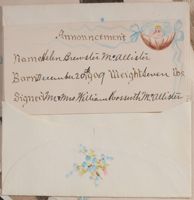 Announcement
Name Helen Brewster McAllister
Born December 20th 1909 Weight Seven lbs
Signed Mr & Mrs William Bosworth McAllister